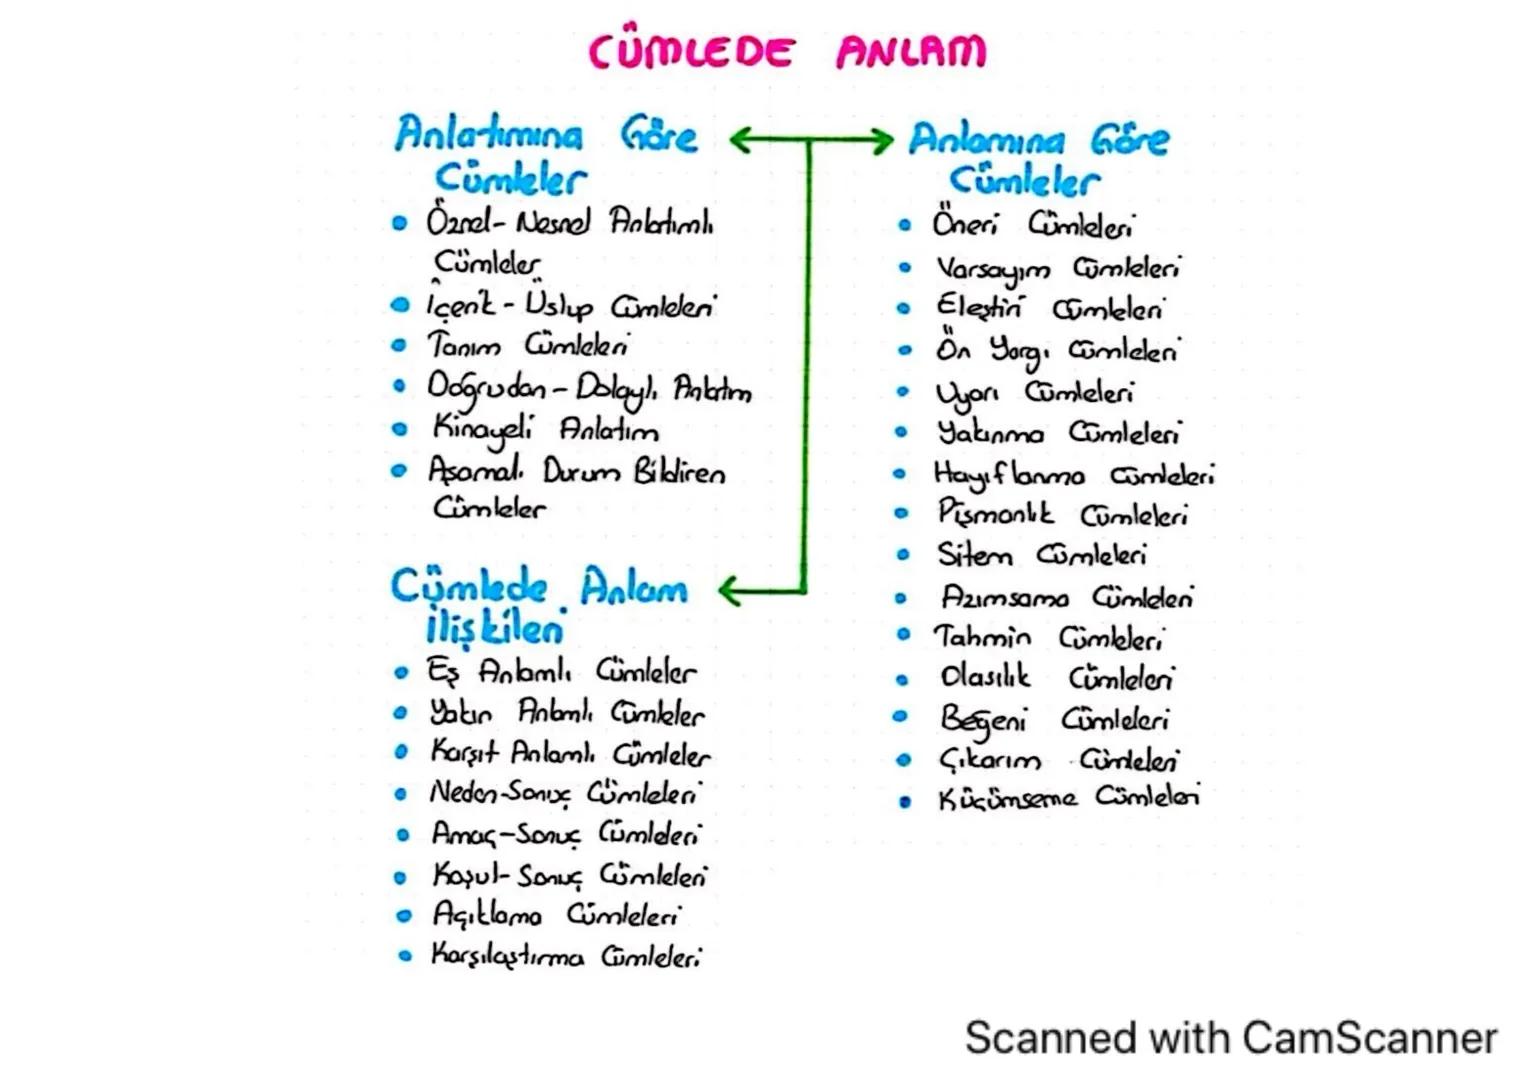 CÜMLEDE ANLAM
Anlatımına Göre
Cümleler
• Öznel- Nesnel Anlatımlı
Cümleler
• İçerik - Üslup Cümleleri
• Tanım Cümleleri
• Doğrudan - Dolaylı Anlatım
• Kinayeli Anlatım
• Aşamalı Durum Bildiren
Cümleler
Cümlede Anlam
İlişkileri
• Eş Anlamlı Cümleler
• Yakın Anlamlı Cümleler
• Karşıt Anlamlı Cümleler
• Neden-Sonuç Cümleleri
• Amaç-Sonuç Cümleleri
• Koşul- Sonuç Cümleleri
• Açıklama Cümleleri
• Karşılaştırma Cümleleri
Anlamına Göre
Cümleler
• Öneri Cümleleri
• Varsayım Cümleleri
• Eleştiri Cümleleri
• Ön Yargı Cümleleri
• Uyarı Cümleleri
• Yakınma Cümleleri
• Hayıflanma Cümleleri
• Pişmanlık Cümleleri
• Sitem Cümleleri
• Azımsama Cümleleri
• Tahmin Cümleleri
• Olasılık Cümleleri
• Beğeni Cümleleri
• Çıkarım Cümleleri
• Küçümseme Cümleleri
Scanned with CamScanner